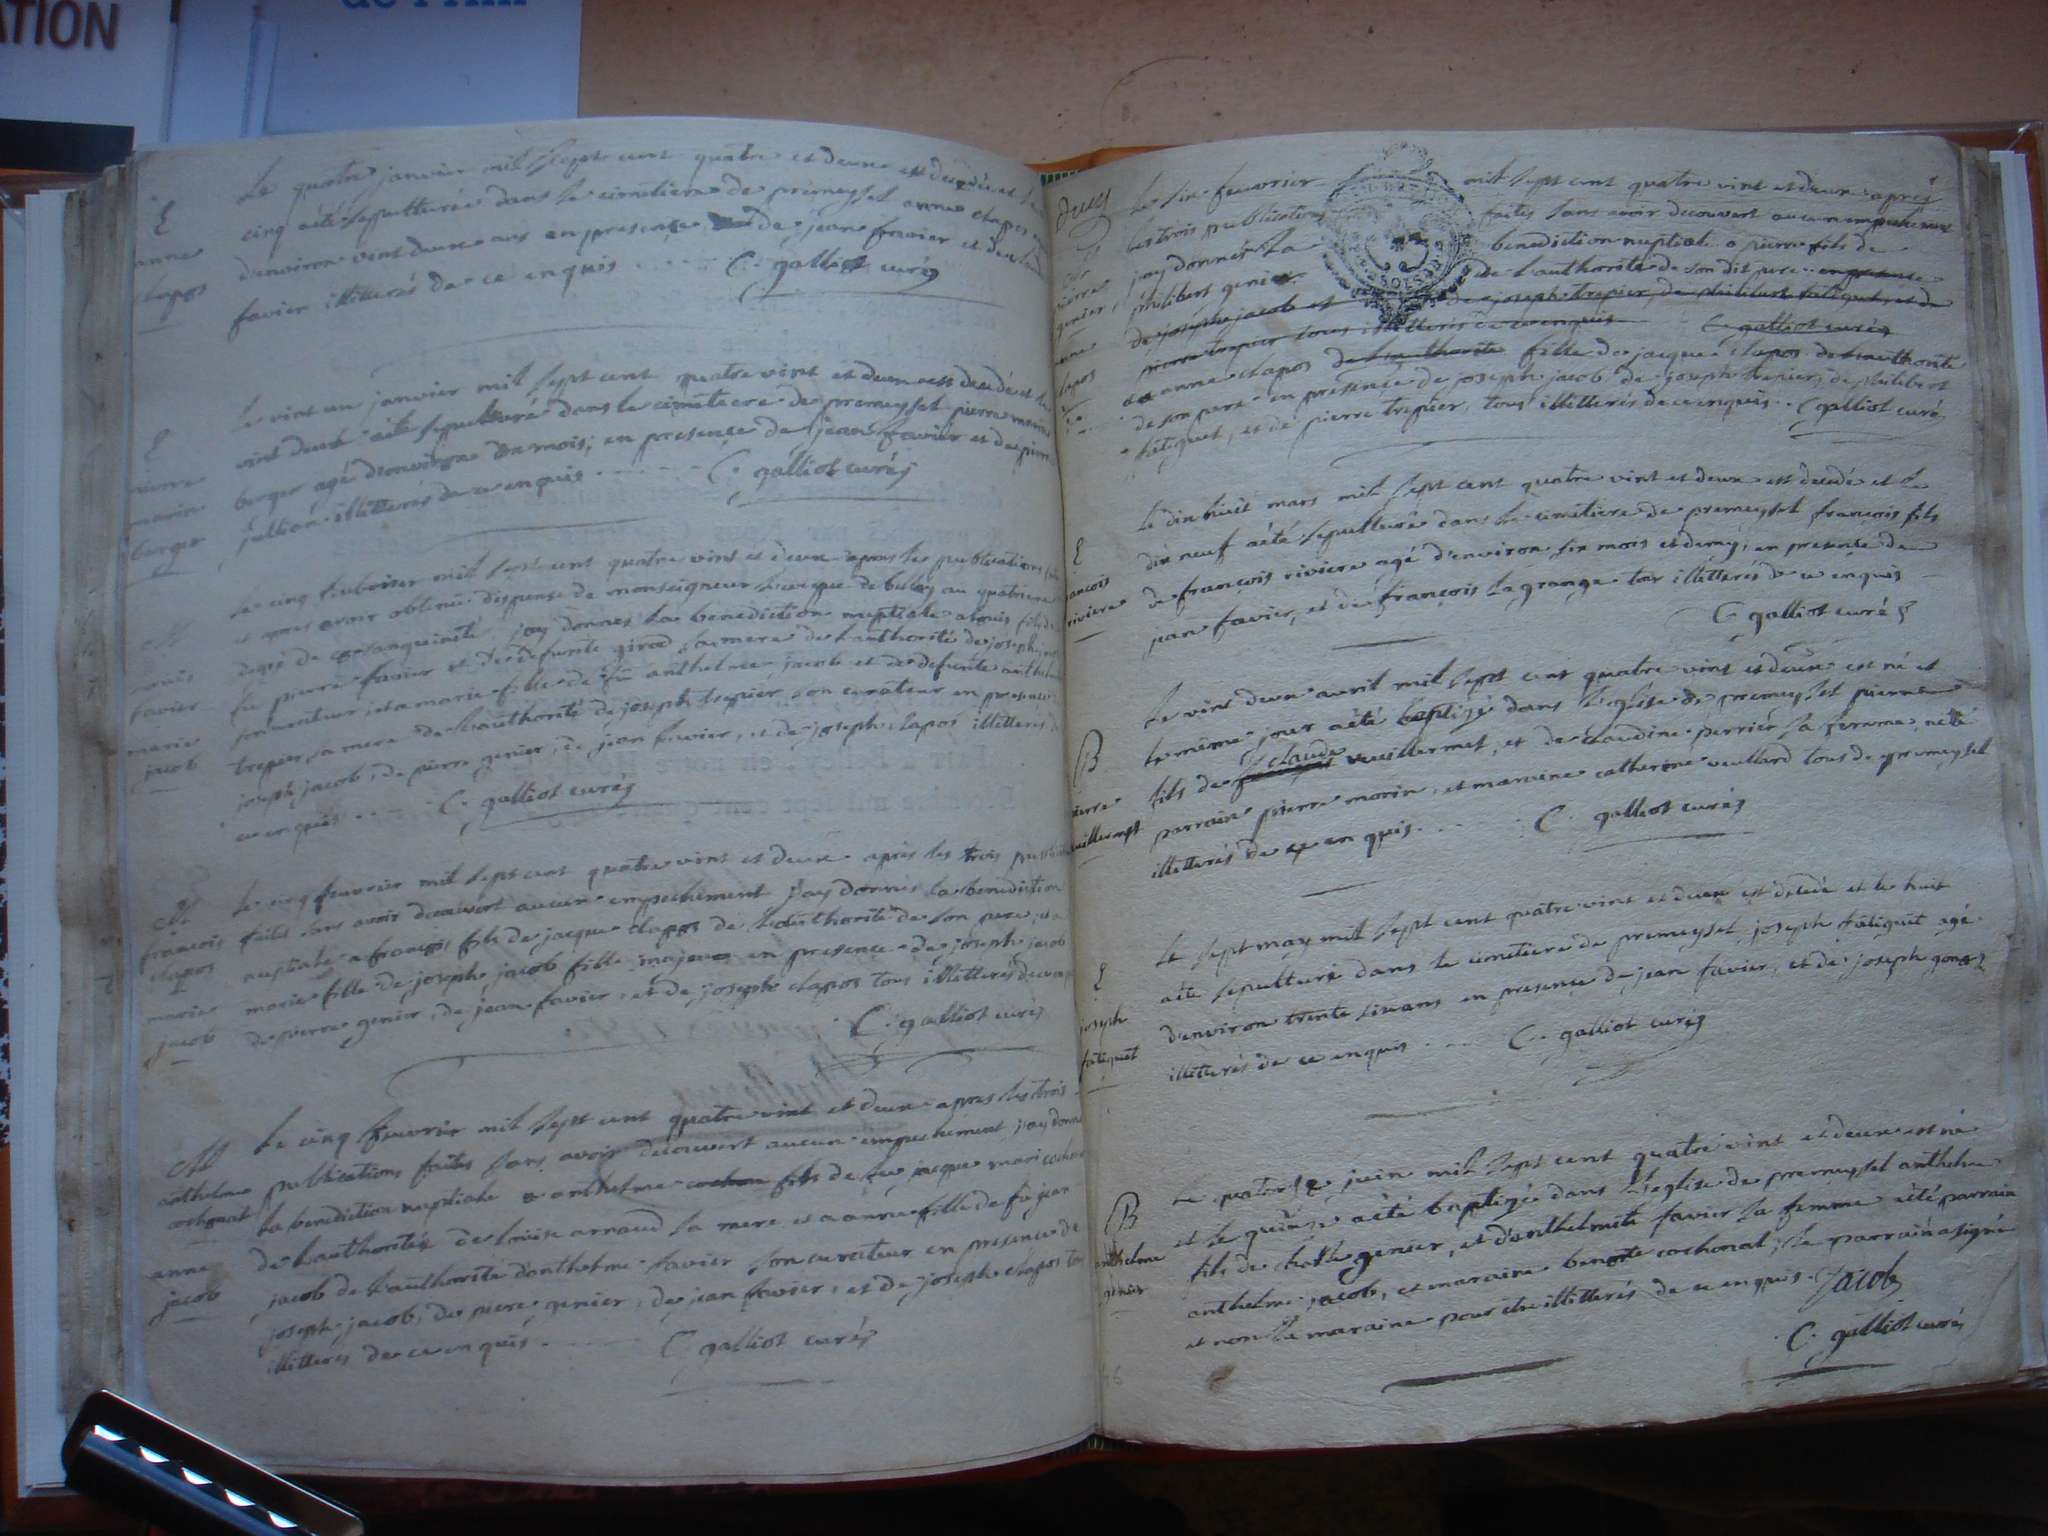 ATION
Le quatre janvier mil sept cent quatre et deux est decédée et le
cinq aété sepulturée dans le cimetiere de premeysel anne clapos
d'environ vint deux ans en presence de jean favier et de
favier illitterés de ce enquis C. galliot curé
E
anne
clapos
Le vint un janvier mil sept cent quatre vint et deux est decedé et le
vint deux aété sepulturé dans le cimetiere de premeysel pierre marin
berger agé d'environ un mois, en presence de jean favier et de pierre
jullian illitterés de ce enquis C. galliot curé
E
pierre
marin
berger
Le cinq fevrier mil sept cent quatre vint et deux apres les publications
et apres avoir obtenu dispense de monseigneur l'eveque de belley au quatrieme
degré de consanguinité, jay donnés la benediction nuptiale a louis fils de
fu pierre favier et de defunte girod sa mere de l'authorité de joseph
curateur, et a marie fille de fu anthelme jacob et de defunte anthelme
trepier sa mere de l'authorité de joseph trepier son curateur en presence de
joseph jacob, de pierre genier, de jean favier, et de joseph clapos illitterés de
ce enquis C. galliot curé
M
louis
favier
marie
jacob
Le cinq feuvrier mil sept cent quatre vint et deux apres les trois publications
faites sans avoir decouvert aucun empechement jay donnés la benediction
nuptiale a françois fils de jacque clapos de l'authorité de son pere, et a
marie fille de joseph jacob fille majeure en presence de joseph jacob
de pierre genier, de jean favier, et de joseph clapos tous illitterés de ce enquis
C. galliot curé
M
francois
clapos
marie
jacob
Le cinq feuvrier mil sept cent quatre vint et deux apres les trois
publications faites sans avoir decouvert aucun empechement jay donné
la benediction nuptiale a anthelme cochon fils de feu jacque mari cochonat
de l'authorité de louise arnaud sa mere et a anne fille de fu jean
jacob de l'authorité d'anthelme favier son curateur en presence de
joseph jacob, de piere genier, de jean favier, et de joseph clapos tous
illitterés de ce enquis C. galliot curé
M
anthelme
cochonat
anne
jacob
Le six feuvrier mil sept cent quatre vint et deux apres
les trois publications faites sans avoir decouvert aucun empechement
jay donnés la benediction nuptiale a pierre fils de
philibert genier de l'authorité de son dit pere en presence
de joseph jacob et de joseph trepier, de philibert fatiguet, et de
pierre trepier tous illitterés de ce enquis C. galliot curé
et a anne clapos de l'authorité fille de jacque clapos de l'authorité
de son pere en presence de joseph jacob de joseph trepier, de philibert
fatiguet, et de pierre trepier, tous illitterés de ce enquis. C galliot curé
pierre
genier
anne
clapos
Le dix huit mars mil sept cent quatre vint et deux est decedé et le
dix neuf aété sepulturé dans le cimetiere de premeysel françois fils
de françois riviere agé d'environ six mois et demy, en presence de
jean favier, et de françois lagrange tous illitterés de ce enquis
C galliot curé
E
francois
riviere
Le vint deux avril mil sept cent quatre vint et deux est né et
le même jour aété baptizé dans l'eglise de premeysel pierre
fils de claude vuillermet, et de claudine perrier sa femme, aété
parrain pierre morin, et maraine catherine vuillard tous de premeysel
illitterés de ce enquis. C. galliot curé
B
pierre
vuillermet
Le sept may mil sept cent quatre vint et deux est decedé et le huit
aété sepulturé dans le cimetiere de premeysel joseph fatiguet agé
d'environ trente six ans en presence de jean favier, et de joseph
illitterés de ce enquis C. galliot curé
E
joseph
fatiguet
Le quatorze juin mil sept cent quatre vint et deux est né
et le quinze aété baptizé dans l'eglise de premeysel anthelme
fils de genier, et d'anthelmette favier sa femme aété parrain
anthelme jacob, et maraine benoite cochonat, le parrain a signé
et non la maraine pour etre illitterés de ce enquis. Jacob
C. galliot curé
B
anthelme
genier